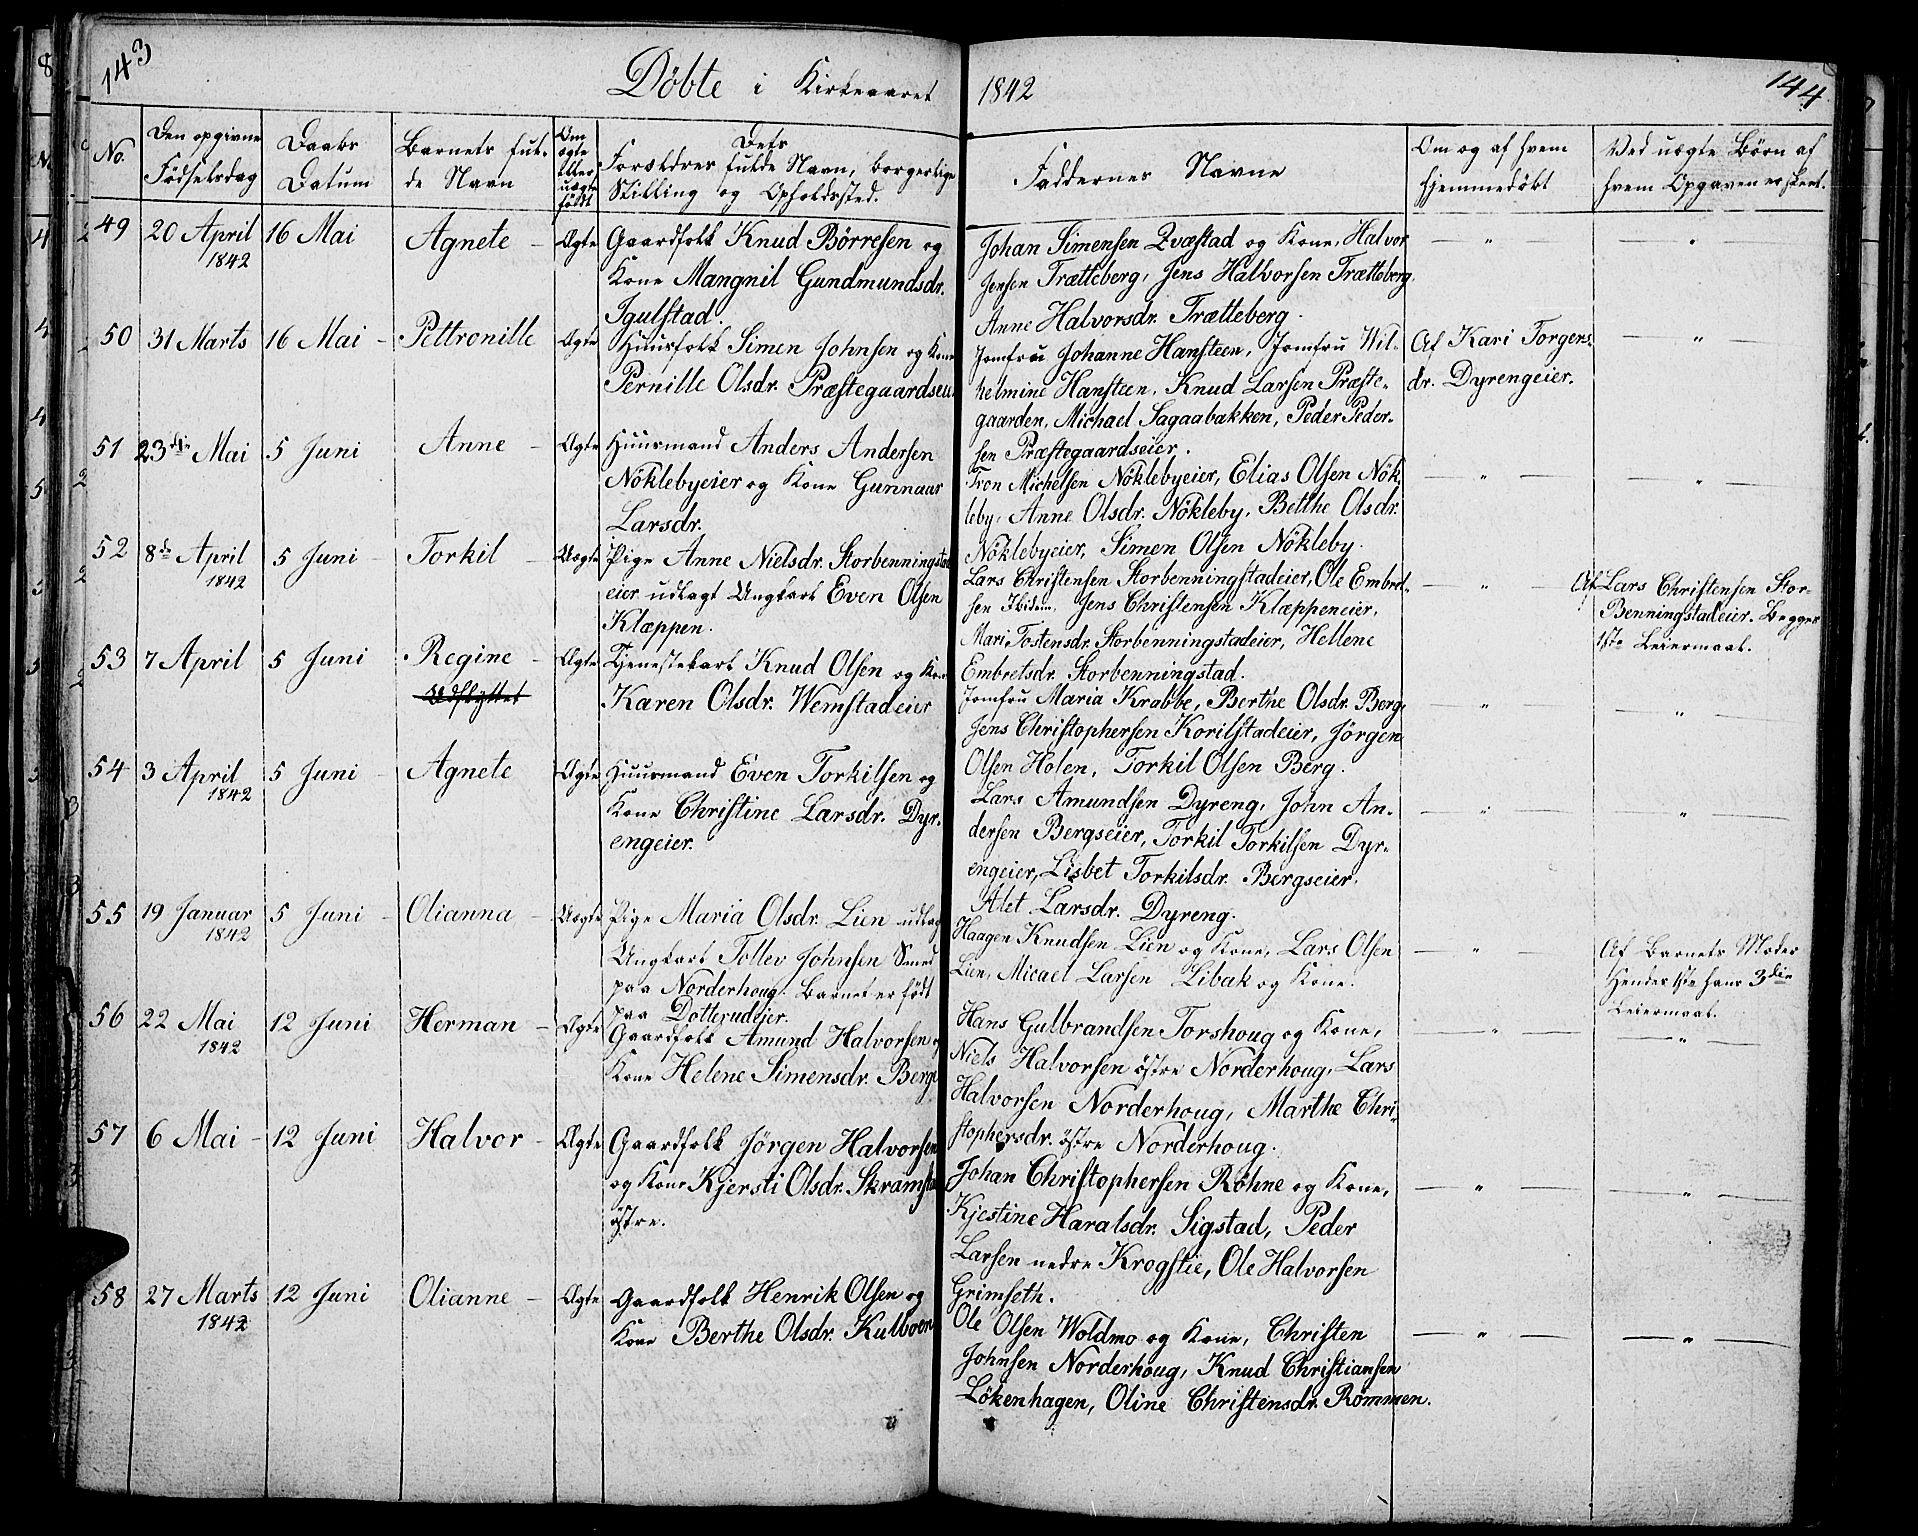 143
Döbte i Kirkeaaret
1842
144
No.
Den opgivne
Födselsdag
Daabs
Datum
Barnets ful-
de Navn
Om
ægte
eller
uægte
födt
Dets
Forældres fulde Navn, borgerlige
Stilling og Opholdssted.
Faddernes Navne
Om og af hvem
hjemmedöbt
Ved uægte Börn af
hvem Opgaven er skeet.
49
20 April
1842
16 Mai
Agnete –
Ægte
Gaardfolk Knud Börresen og
Kone Mangnil Gundmundsdr.
Igulstad.
Johan Simensen Qvæstad og Kone, Halvor
Jensen Trætteberg, Jens Halvorsen Trætteberg
Anne Halvorsdr. Trætteberg.
— " —
— " —
50
31 Marts
16 Mai –
Pettronille
Ægte
Huusfolk Simen Johnsen og Kone
Pernille Olsdr. Præstegaardseie
Jomfru Johanne Hansteen, Jomfru Wil-
helmine Hansteen, Knud Larsen Præste-
gaarden, Michael Sagaabakken, Peder Peder-
sen Præstegaardseier.
Af Kari Torgers-
dr. Dyrengeier.
— " —
51
23de Mai
5 Juni
Anne –
Ægte
Huusmand Anders Andersen
Nöklebyeier og Kone Gunnaar
Larsdr.
Tron Michelsen Nöklebyeier, Elias Olsen Nök-
leby, Anne Olsdr. Nökleby, Bethe Olsdr.
Nöklebyeier, Simen Olsen Nökleby.
— " —
— " —
52
8de April
1842
5 Juni –
Torkil –
Uægte
Pige Anne Nielsdr. Storbenningstad
eier udlagt Ungkarl Even Olsen
Klæppen.
Lars Christensen Storbenningstadeier, Ole Embret-
sen Ibidem. Jens Christensen Klæppeneier,
Mari Tostensdr. Storbenningstadeier, Hellene
Embretsdr. Storbenningstad.
— " —
Af Lars Christensen Stor-
Benningstadeier. Begges
1ste Leiermaal.
53
7 April
5 Juni
Regine –
Udflyttet
Ægte
Tjenestekarl Knud Olsen og Kone
Karen Olsdr. Wemstadeier
Jomfru Maria Krabbe, Berthe Olsdr. Berg,
Jens Christophersen Korilstadeier, Jörgen
Olsen Holen, Torkil Olsen Berg.
— " —
— " —
54
3 April
1842
5 Juni –
Agnete
Ægte
Huusmand Even Torkilsen og
Kone Christine Larsdr. Dyr-
engeier.
Lars Amundsen Dyreng, John An-
dersen Bergseier, Torkil Torkilsen Dyr-
engeier, Lisbet Torkilsdr. Bergseier.
Alet Larsdr. Dyreng.
— " —
— " —
55
19 Januar
1842
5 Juni –
Olianna –
Uægte
Pige Maria Olsdr. Lien udlagt
Ungkarl Tollev Johnsen Smed
paa Norderhoug. Barnet er födt
paa Dotterudeier.
Haagen Knudsen Lien og Kone, Lars Olsen
Lien, Micael Larsen Libak og Kone.
— " —
Af Barnets Moder
Hendes 1ste hans 3die
Leiermaal.
56
22 Mai
1842
12 Juni
Herman –
Ægte
Gaardfolk Amund Halvorsen og
Kone Helene Simensdr. Berg
Hans Gulbrandsen Torshoug og Kone,
Niels Halvorsen östre Norderhoug, Lars
Halvorsen Norderhoug, Marthe Chri-
stophersdr. östre Norderhoug.
— " —
— " —
57
6 Mai –
12 Juni
Halvor –
Ægte
Gaardfolk Jörgen Halvorsen
og Kone Kjersti Olsdr. Skramstad
östre.
Johan Christophersen Röhne og Kone,
Kjestine Haralsdr. Sigstad, Peder
Larsen nedre Krogstie, Ole Halvorsen
Grimseth.
— " —
— " —
58
27 Marts
1842
12 Juni
Olianne –
Ægte
Gaardfolk Henrik Olsen og
Kone Berthe Olsdr. Kulboen
Ole Olsen Woldmo og Kone, Christen
Johnsen Norderhoug, Knud Christiansen
Lökenhagen, Oline Christensdr. Rømmen.
— " —
— " —